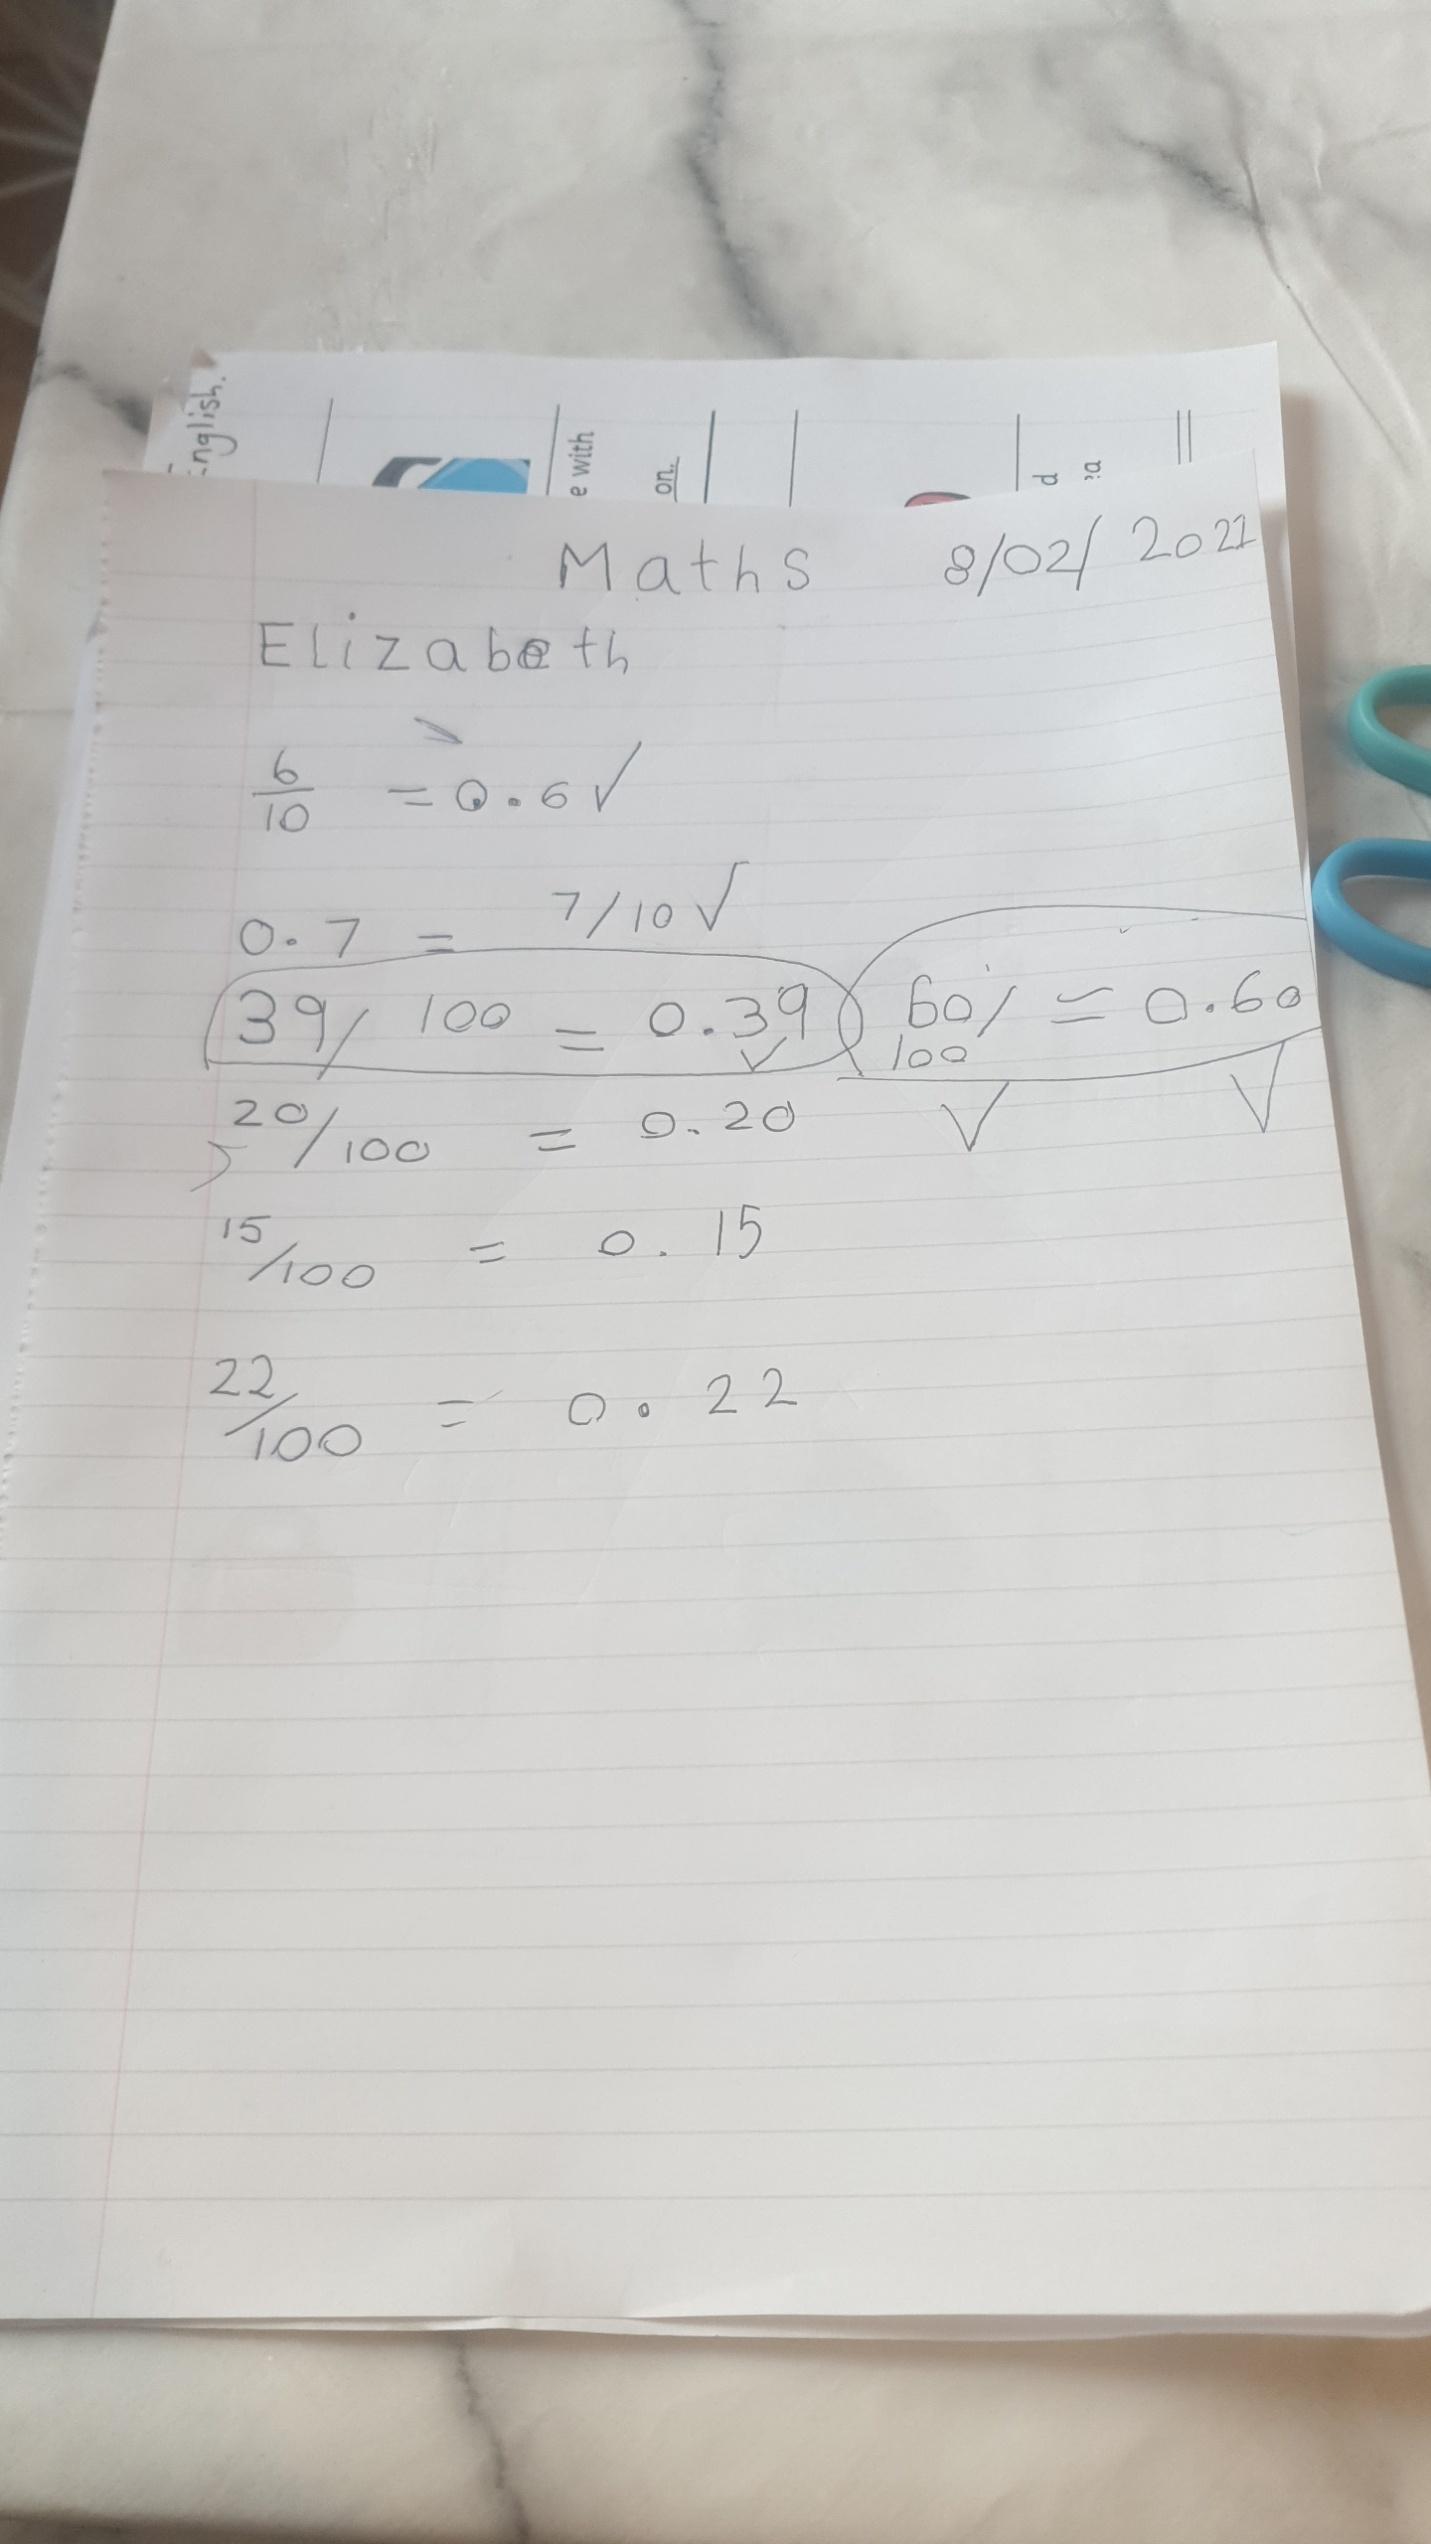 English.
e with
on.
d
a
Maths 8/02/2021
Elizabeth
6/10 = 0.6 ✓
0.7 = 7/10 ✓
39/100 = 0.39 ✓ 60/100 = 0.60 ✓ ✓
20/100 = 0.20
15/100 = 0.15
22/100 = 0.22